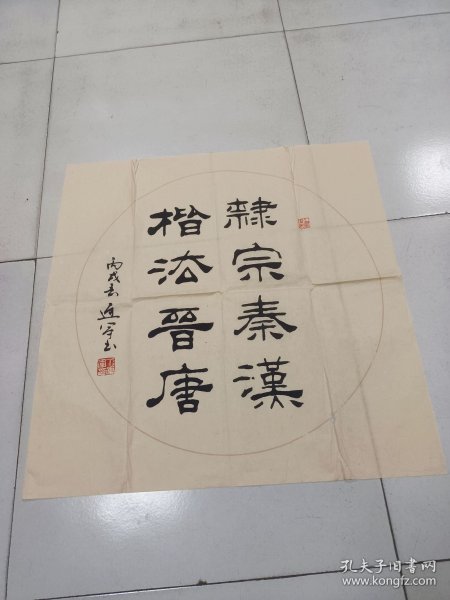 隸宗秦漢
楷法晉唐
丙戌春
孔夫子旧书网
www.kongfz.com